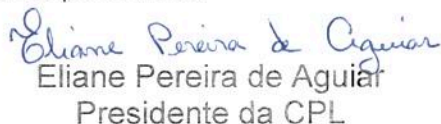 Eliane Pereira de Aguiar
Eliane Pereira de Aguiar
Presidente da CPL